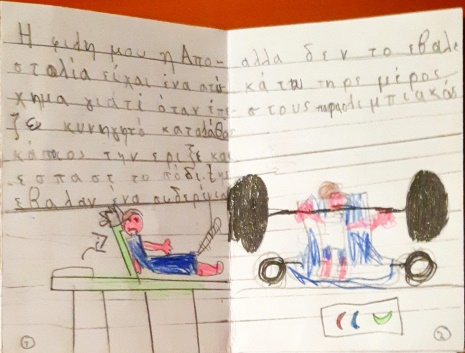 Η φιλη μου η Απο-
σταλία είχαι ένα ατύ-
χημα γιάτί όταν έπε-
ζε κυνηγητό καταλάθος
κάπιος την εριξε και
εσπασε το πόδι της
εβαλαν ένα
αλλα δεν το εβαλε
κάτω πηρε μέρος
στους παραολιμπιακούς
1
2